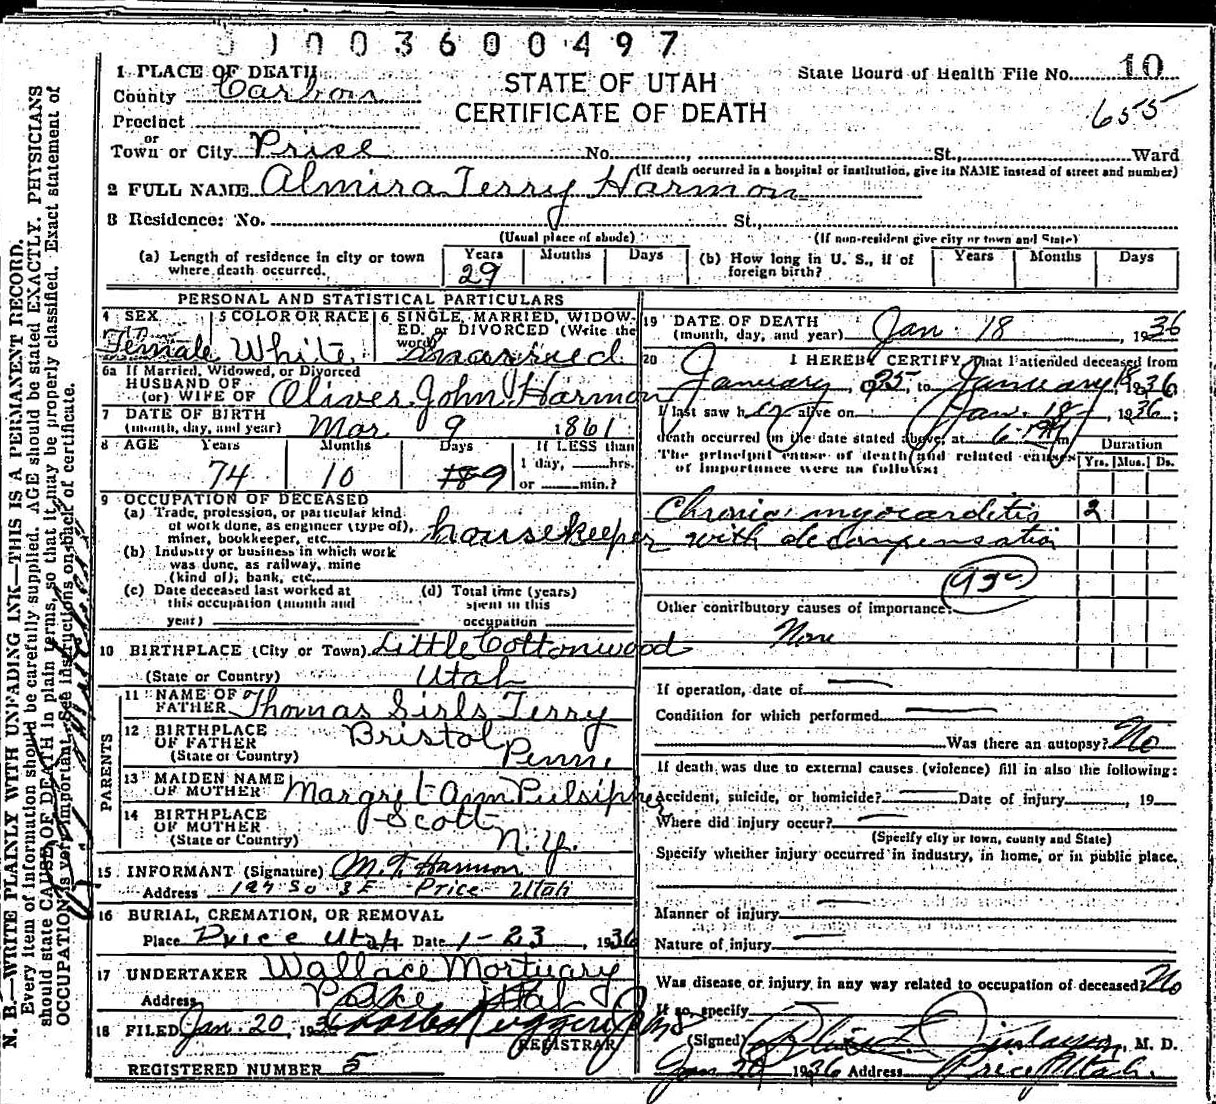 0 1 0 0 3 6 0 0 4 9 7
STATE OF UTAH
CERTIFICATE OF DEATH
State Board of Health File No. 10
655
1 PLACE OF DEATH
County Carbon
Precinct
or
Town or City Price No. , St., Ward
(If death occurred in a hospital or institution, give its NAME instead of street and number)
2 FULL NAME Almira Terry Harmon
3 Residence: No. St.,
(Usual place of abode) (If non-resident give city or town and State)
(a) Length of residence in city or town where death occurred. Years 29 Months Days
(b) How long in U. S., if of foreign birth? Years Months Days
PERSONAL AND STATISTICAL PARTICULARS
4 SEX Female
5 COLOR OR RACE White
6 SINGLE, MARRIED, WIDOWED, or DIVORCED (Write the word) married
6a If Married, Widowed, or Divorced
HUSBAND OF
(or) WIFE OF Oliver John Harmon
7 DATE OF BIRTH
(month, day, and year) Mar 9 1861
8 AGE Years Months Days If LESS than
74 10 9 1 day, hrs.
or min.?
9 OCCUPATION OF DECEASED
(a) Trade, profession, or particular kind
of work done, as engineer (type of),
miner, bookkeeper, etc. housekeeper
(b) Industry or business in which work
was done, as railway, mine
(kind of); bank, etc.
(c) Date deceased last worked at
this occupation (month and
year)
(d) Total time (years)
spent in this
occupation
10 BIRTHPLACE (City or Town) Little Cottonwood
(State or Country) Utah
PARENTS
11 NAME OF
FATHER Thomas Sirls Terry
12 BIRTHPLACE
OF FATHER Bristol
(State or Country) Penn.
13 MAIDEN NAME
OF MOTHER Margret Ann Pulsipher
14 BIRTHPLACE
OF MOTHER Scott
(State or Country) N.Y.
15 INFORMANT (Signature) M. T. Harmon
Address 127 So 3 E Price Utah
16 BURIAL, CREMATION, OR REMOVAL
Place Price Utah Date 1-23, 1936
17 UNDERTAKER Wallace Mortuary
Address Price Utah
18 FILED Jan. 20, 1936
REGISTRAR
REGISTERED NUMBER 5
19 DATE OF DEATH
(month, day, and year) Jan. 18, 1936
20 I HEREBY CERTIFY That I attended deceased from
January 25 to January 18 1936
I last saw her alive on Jan. 18, 1936;
death occurred on the date stated above, at 6 m
The principal cause of death and related causes
of importance were as follows:
Duration
Yrs. Mos. Ds.
Chronic myocarditis 2
with decompensation
Other contributory causes of importance:
None
If operation, date of
Condition for which performed
Was there an autopsy? No
If death was due to external causes (violence) fill in also the following:
Accident, suicide, or homicide? Date of injury , 19
Where did injury occur?
(Specify city or town, county and State)
Specify whether injury occurred in industry, in home, or in public place.
Manner of injury
Nature of injury
Was disease or injury in any way related to occupation of deceased? No
If so, specify
(Signed) M. D.
Jan 20 1936 Address Price Utah.
N. B.—WRITE PLAINLY WITH UNFADING INK—THIS IS A PERMANENT RECORD.
Every item of information should be carefully supplied. AGE should be stated EXACTLY. PHYSICIANS
should state CAUSE OF DEATH in plain terms, so that it may be properly classified. Exact statement of
OCCUPATION is very important. See instructions on back of certificate.